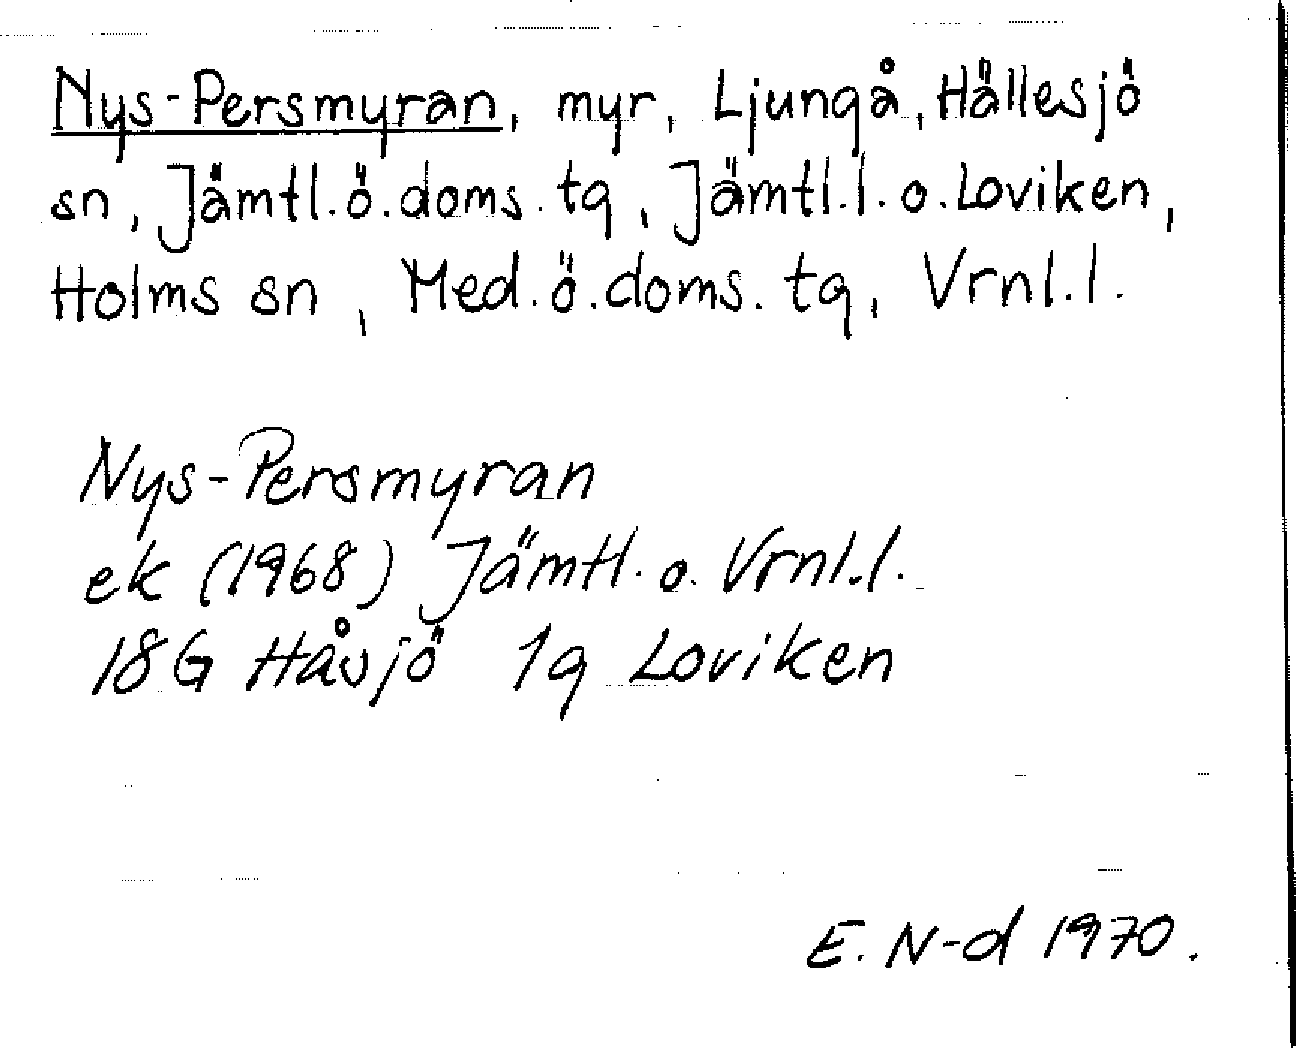 Nys-Persmyran, myr, Ljungå, Hällesjö
sn, Jämtl.ö.doms.tg, Jämtl.l.o.Loviken,
Holms sn, Med.ö.doms.tg, Vrnl.l.
Nys-Persmyran
ek (1968) Jämtl. o. Vrnl.l.
18G Håsjö 1g Loviken
E. N-d 1970.